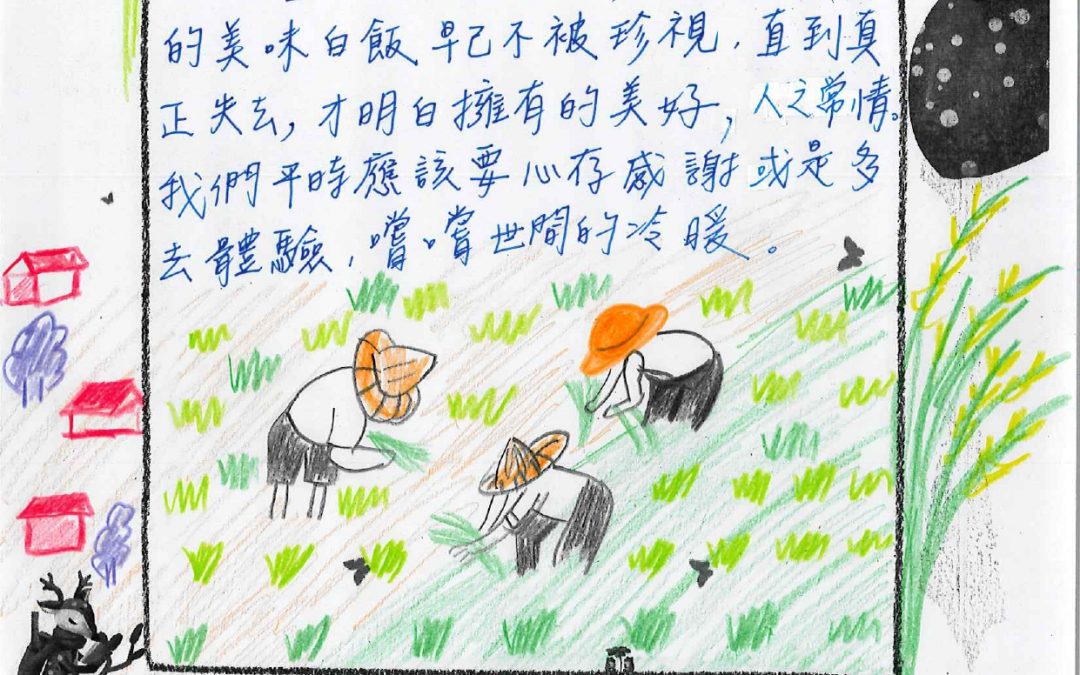 的美味白飯早已不被珍視，直到真
正失去，才明白擁有的美好，人之常情。
我們平時應該要心存感謝或是多
去體驗，嚐嚐世間的冷暖。